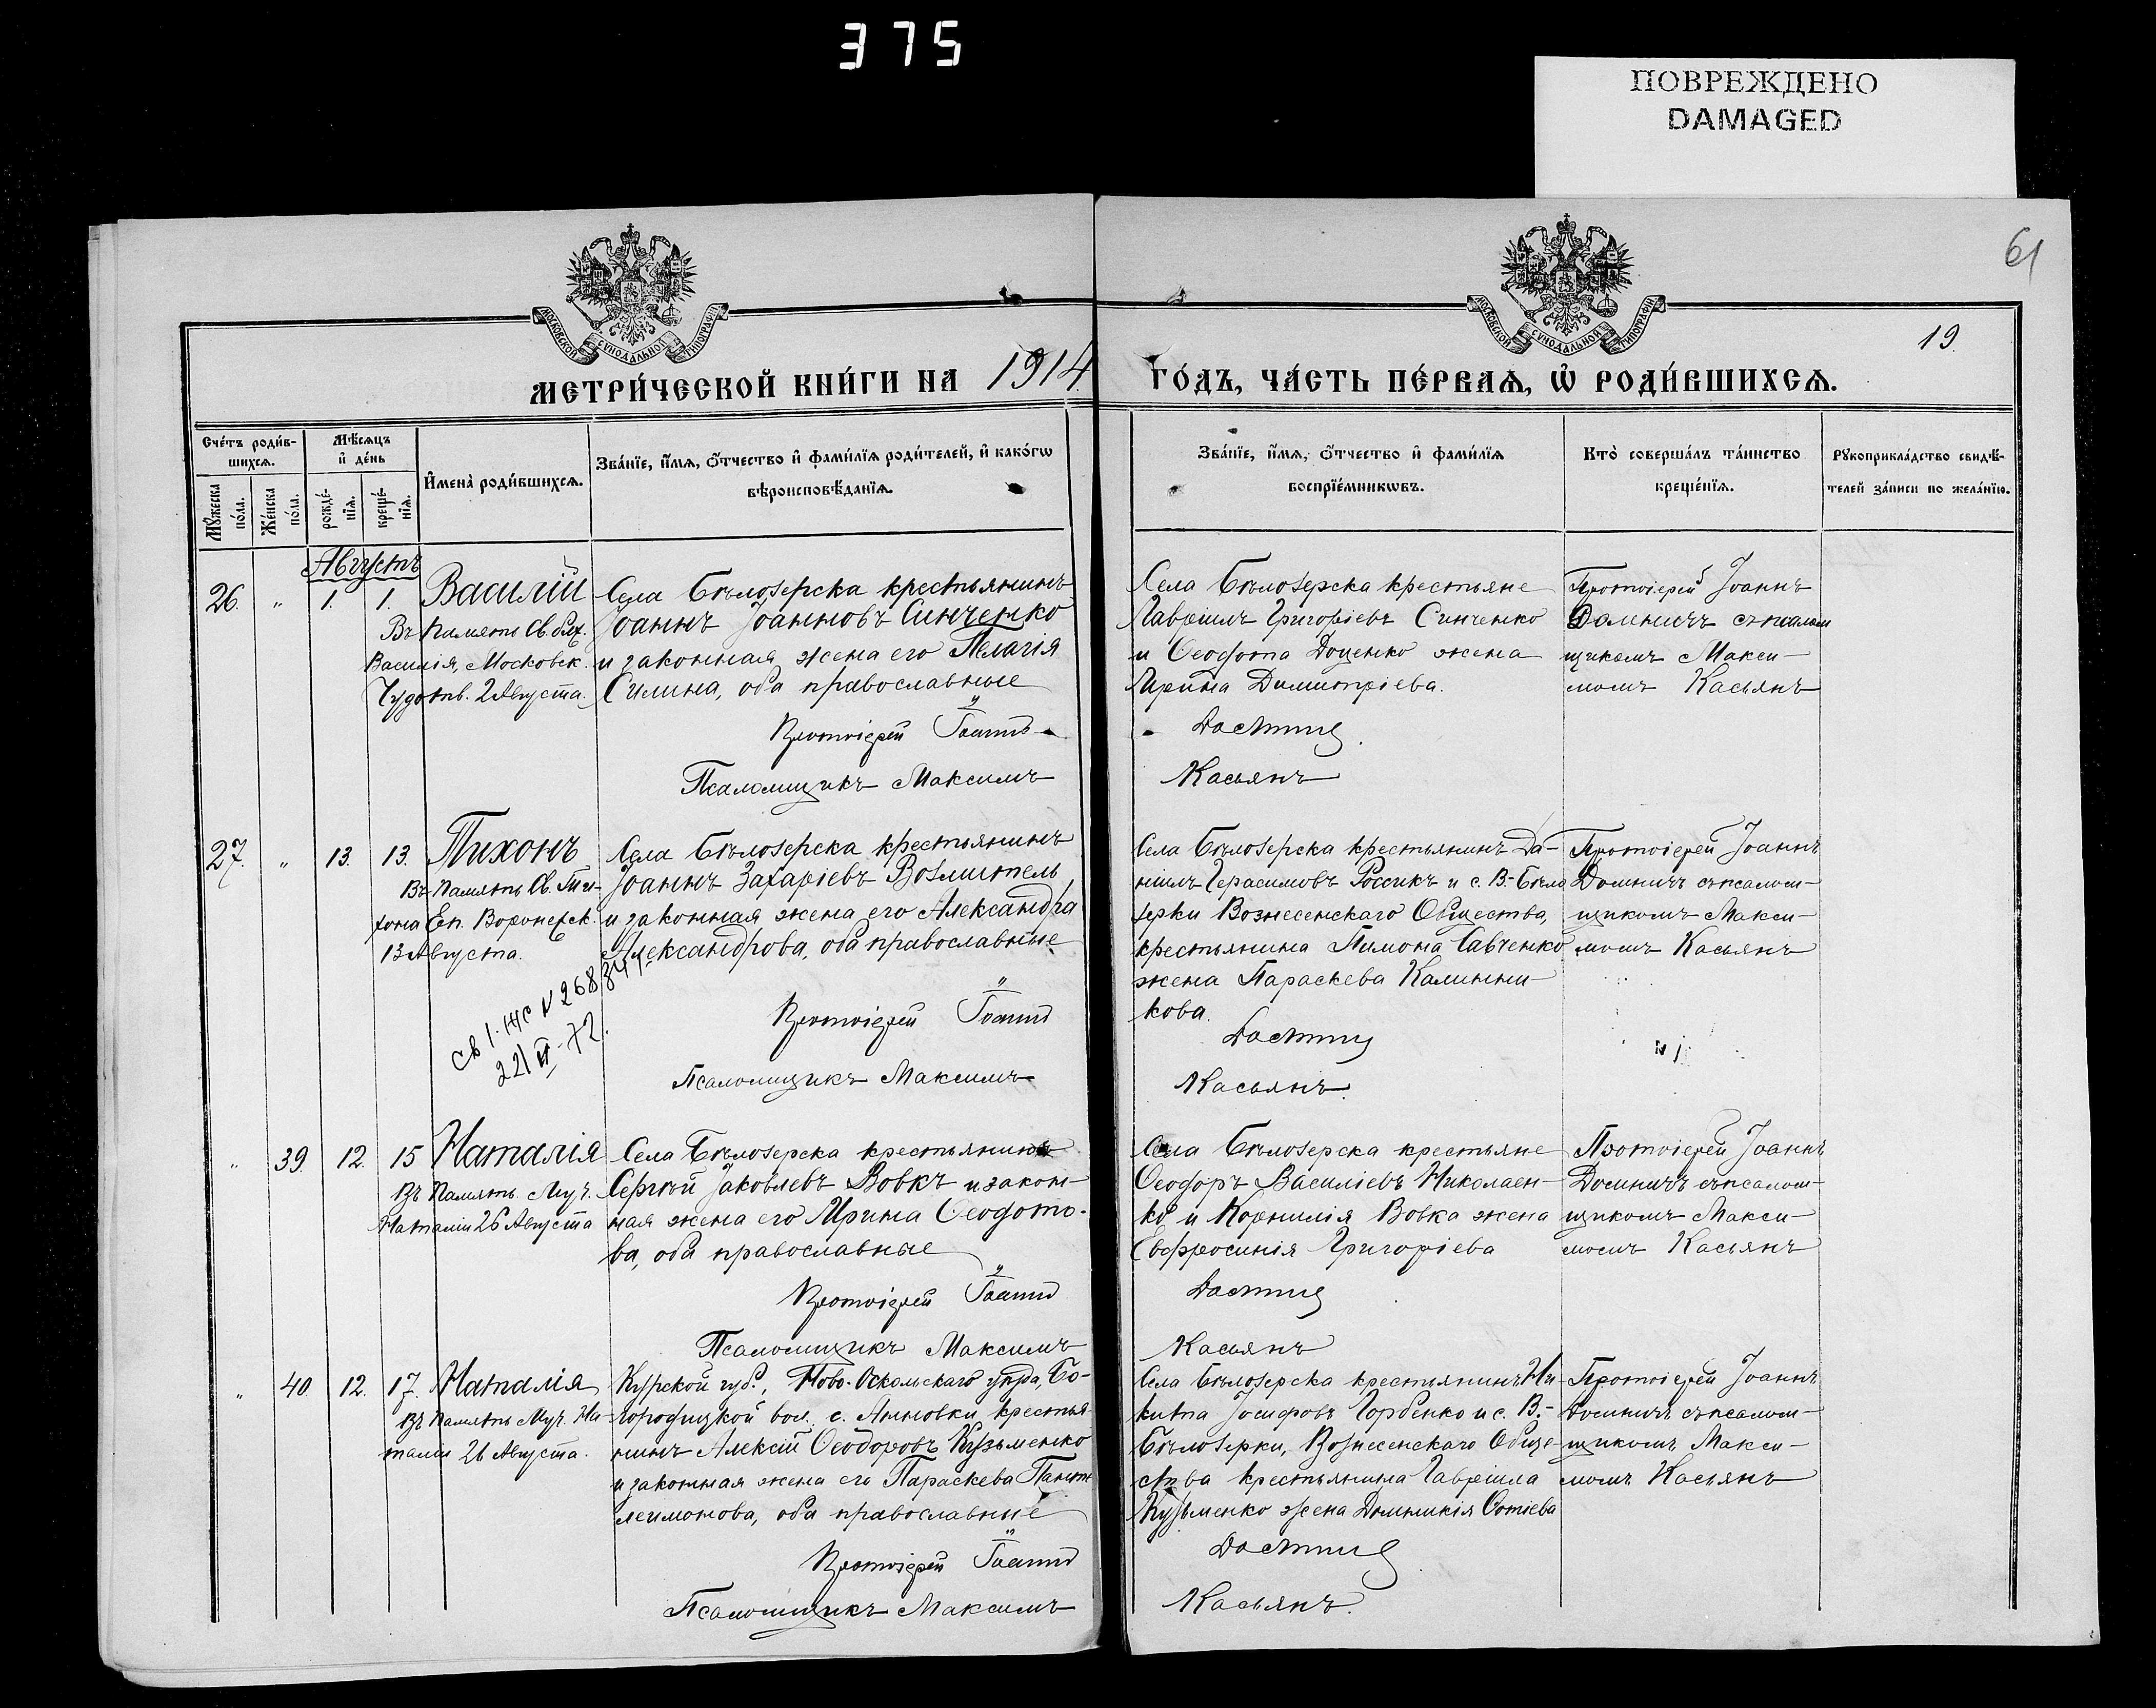 375
ПОВРЕЖДЕНО
DAMAGED
61
МОСКОВСКОЙ СѴНОДАЛЬНОЙ ТИПОГРАФІИ
МОСКОВСКОЙ СѴНОДАЛЬНОЙ ТИПОГРАФІИ
19.
МЕТРИ́ЧЕСКОЙ КНИ́ГИ НА 1914 ГО́ДЪ, ЧА́СТЬ ПЕ́РВАѦ, Ѡ҆ РОДИ́ВШИХСѦ.
Сче́тъ роди́в-
шихсѧ.
Мꙋ́жеска по́ла.
Же́нска по́ла.
Мѣ́сѧцъ
и҆ де́нь
рожде́-
нїѧ.
креще́-
нїѧ.
И҆мена̀ роди́вшихсѧ.
Зва́нїе, и҆́мѧ, ѻ҆́тчество и҆ фами́лїѧ роди́телей, и҆ како́гѡ
вѣроисповѣ́данїѧ.
Зва́нїе, и҆́мѧ, ѻ҆́тчество и҆ фами́лїѧ
воспрїе́мникѡвъ.
Кто̀ соверша́лъ та́инство
креще́нїѧ.
Рꙋкоприкла́дство свидѣ́-
телей за́писи по жела́нїю.
Августъ
26. " 1. 1. Василій
Въ память Св. блж.
Василія, Московск.
Чудотв. 2 Августа.
Села Бѣлозерска крестьянинъ
Іоаннъ Іоанновъ Синченко
и законная жена его Пелагія
Силина, оба православные
Протоіерей Іоаннъ
Псаломщикъ Максимъ
Села Бѣлозерска крестьяне
Гавріилъ Григоріевъ Синченко
и Ѳеодота Доценко жена
Ирина Димитріева.
Касьянъ
Протоіерей Іоаннъ
Доминичъ съ псалом
щикомъ Макси-
момъ Касьянъ
27. " 13. 13. Тихонъ
Въ память Св. Ти-
хона Еп. Воронежск.
13 Августа.
св 1. нс N 268344
22/VI-72.
Села Бѣлозерска крестьянинъ
Іоаннъ Захаріевъ Возмитель
и законная жена его Александра
Александрова, оба православные
Протоіерей Іоаннъ
Псаломщикъ Максимъ
Села Бѣлозерска крестьянинъ Да-
ніилъ Герасимовъ Россикъ и с. В.-Бѣло
зерки Вознесенскаго Общества,
крестьянина Пимона Савченко
жена Параскева Калинни-
кова.
Касьянъ.
Протоіерей Іоаннъ
Доминичъ съ псалом-
щикомъ Макси-
момъ Касьянъ
" 39. 12. 15 Наталія
Въ память Муч.
Наталіи 26 Августа
Села Бѣлозерска крестьянинъ
Сергѣй Іаковлевъ Вовкъ и закон-
ная жена его Ирина Ѳеодото-
ва, оба православные
Протоіерей Іоаннъ
Псаломщикъ Максимъ
Села Бѣлозерска крестьяне
Ѳеодоръ Василіевъ Николаен-
ко и Корнилія Вовка жена
Евфросинія Григоріева
Касьянъ
Протоіерей Іоаннъ
Доминичъ съ псалом-
щикомъ Макси-
момъ Касьянъ
" 40. 12. 17. Наталія
Въ память Муч. На-
таліи 26 Августа.
Курской губ., Ново-Оскольскаго уѣзда, Бо-
городицкой вол. с. Анновки крестья
нинъ Алексій Ѳеодоровъ Кузьменко
и законная жена его Параскева Панте
леимонова, оба православные
Протоіерей Іоаннъ
Псаломщикъ Максимъ
Села Бѣлозерска крестьянинъ Ни
кита Іосифовъ Горбенко и с. В.-
Бѣлозерки, Вознесенскаго Обще-
ства крестьянина Гавріила
Кузьменко жена Домникія Фотіева
Касьянъ.
Протоіерей Іоаннъ
Доминичъ съ псалом-
щикомъ Макси-
момъ Касьянъ